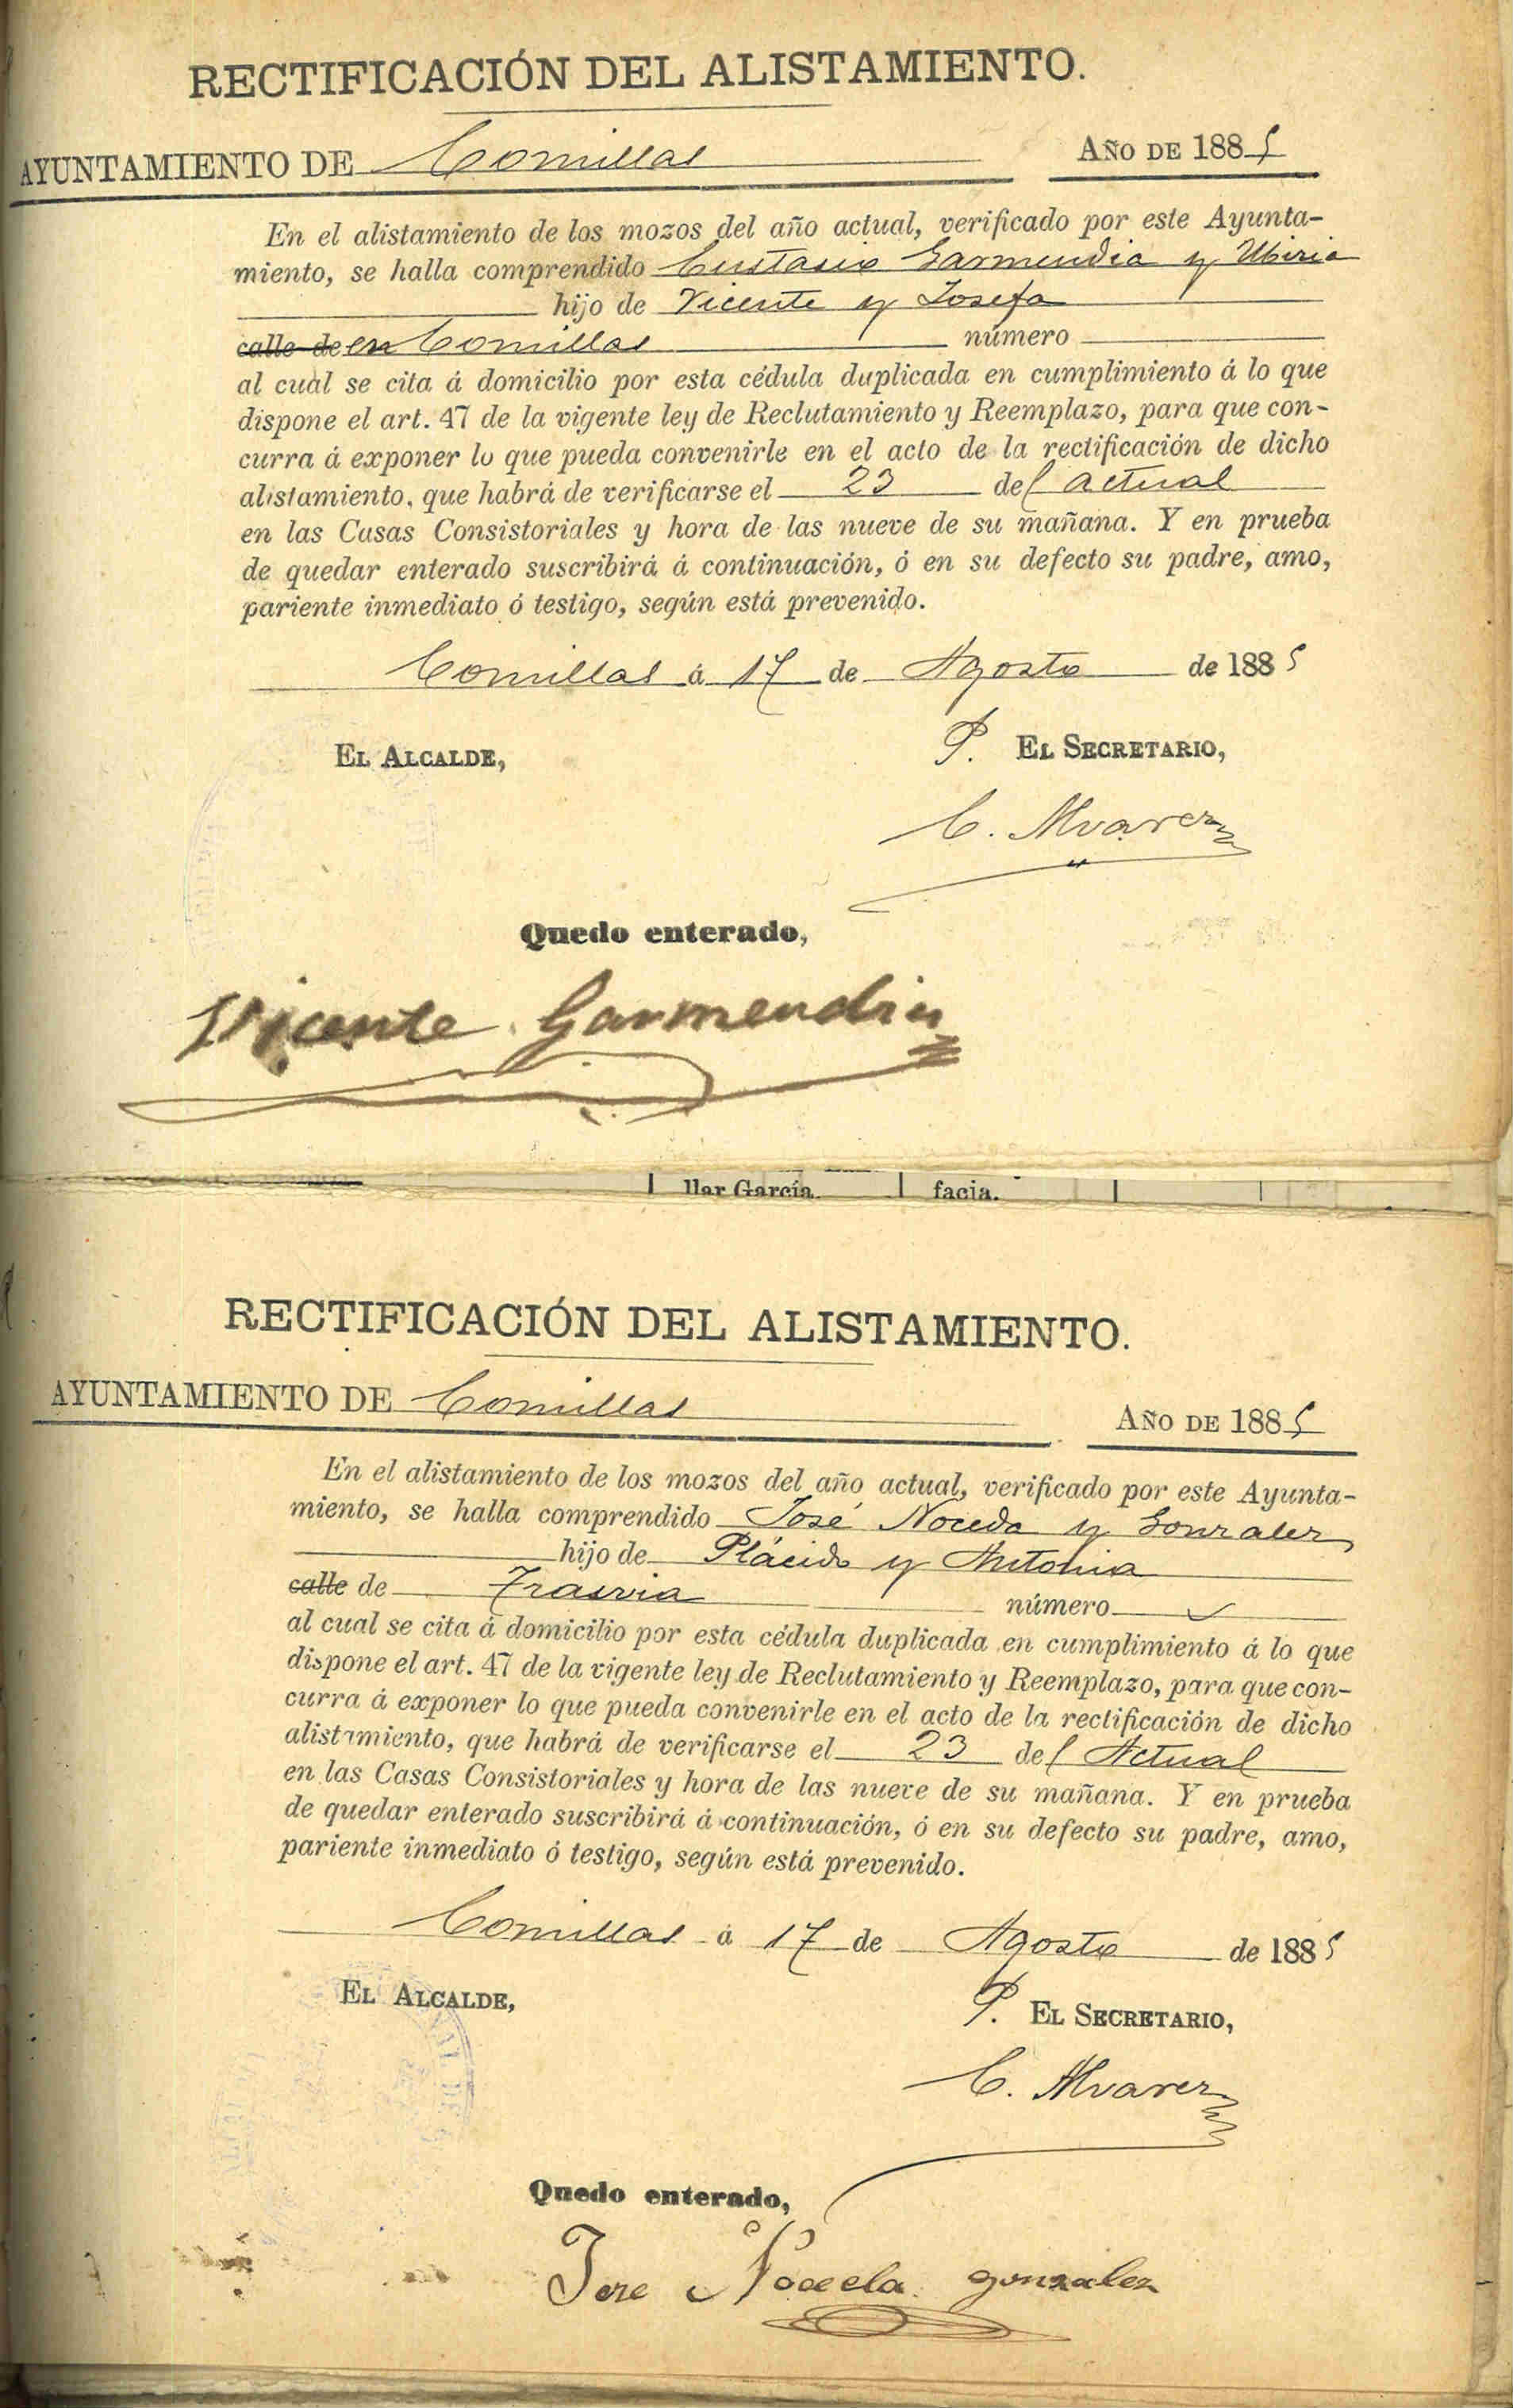 RECTIFICACIÓN DEL ALISTAMIENTO.
AYUNTAMIENTO DE Comillas AÑO DE 1885
En el alistamiento de los mozos del año actual, verificado por este Ayunta-
miento, se halla comprendido Eustasio Garmendia y Ubiria
hijo de Vicente y Josefa
calle de en Comillas número
al cual se cita á domicilio por esta cédula duplicada en cumplimiento á lo que
dispone el art. 47 de la vigente ley de Reclutamiento y Reemplazo, para que con-
curra á exponer lo que pueda convenirle en el acto de la rectificación de dicho
alistamiento, que habrá de verificarse el 23 del actual
en las Casas Consistoriales y hora de las nueve de su mañana. Y en prueba
de quedar enterado suscribirá á continuación, ó en su defecto su padre, amo,
pariente inmediato ó testigo, según está prevenido.
Comillas á 17 de Agosto de 1885
EL ALCALDE, P. EL SECRETARIO,
C. Alvarez
Quedo enterado,
Vicente Garmendia
llar García facia.
RECTIFICACIÓN DEL ALISTAMIENTO.
AYUNTAMIENTO DE Comillas AÑO DE 1885
En el alistamiento de los mozos del año actual, verificado por este Ayunta-
miento, se halla comprendido José Noceda y Gonzalez
hijo de Plácido y Antonia
calle de Trasvia número
al cual se cita á domicilio por esta cédula duplicada en cumplimiento á lo que
dispone el art. 47 de la vigente ley de Reclutamiento y Reemplazo, para que con-
curra á exponer lo que pueda convenirle en el acto de la rectificación de dicho
alistamiento, que habrá de verificarse el 23 del Actual
en las Casas Consistoriales y hora de las nueve de su mañana. Y en prueba
de quedar enterado suscribirá á continuación, ó en su defecto su padre, amo,
pariente inmediato ó testigo, según está prevenido.
Comillas á 17 de Agosto de 1885
EL ALCALDE, P. EL SECRETARIO,
C. Alvarez
Quedo enterado,
Jose Noceda gonzalez